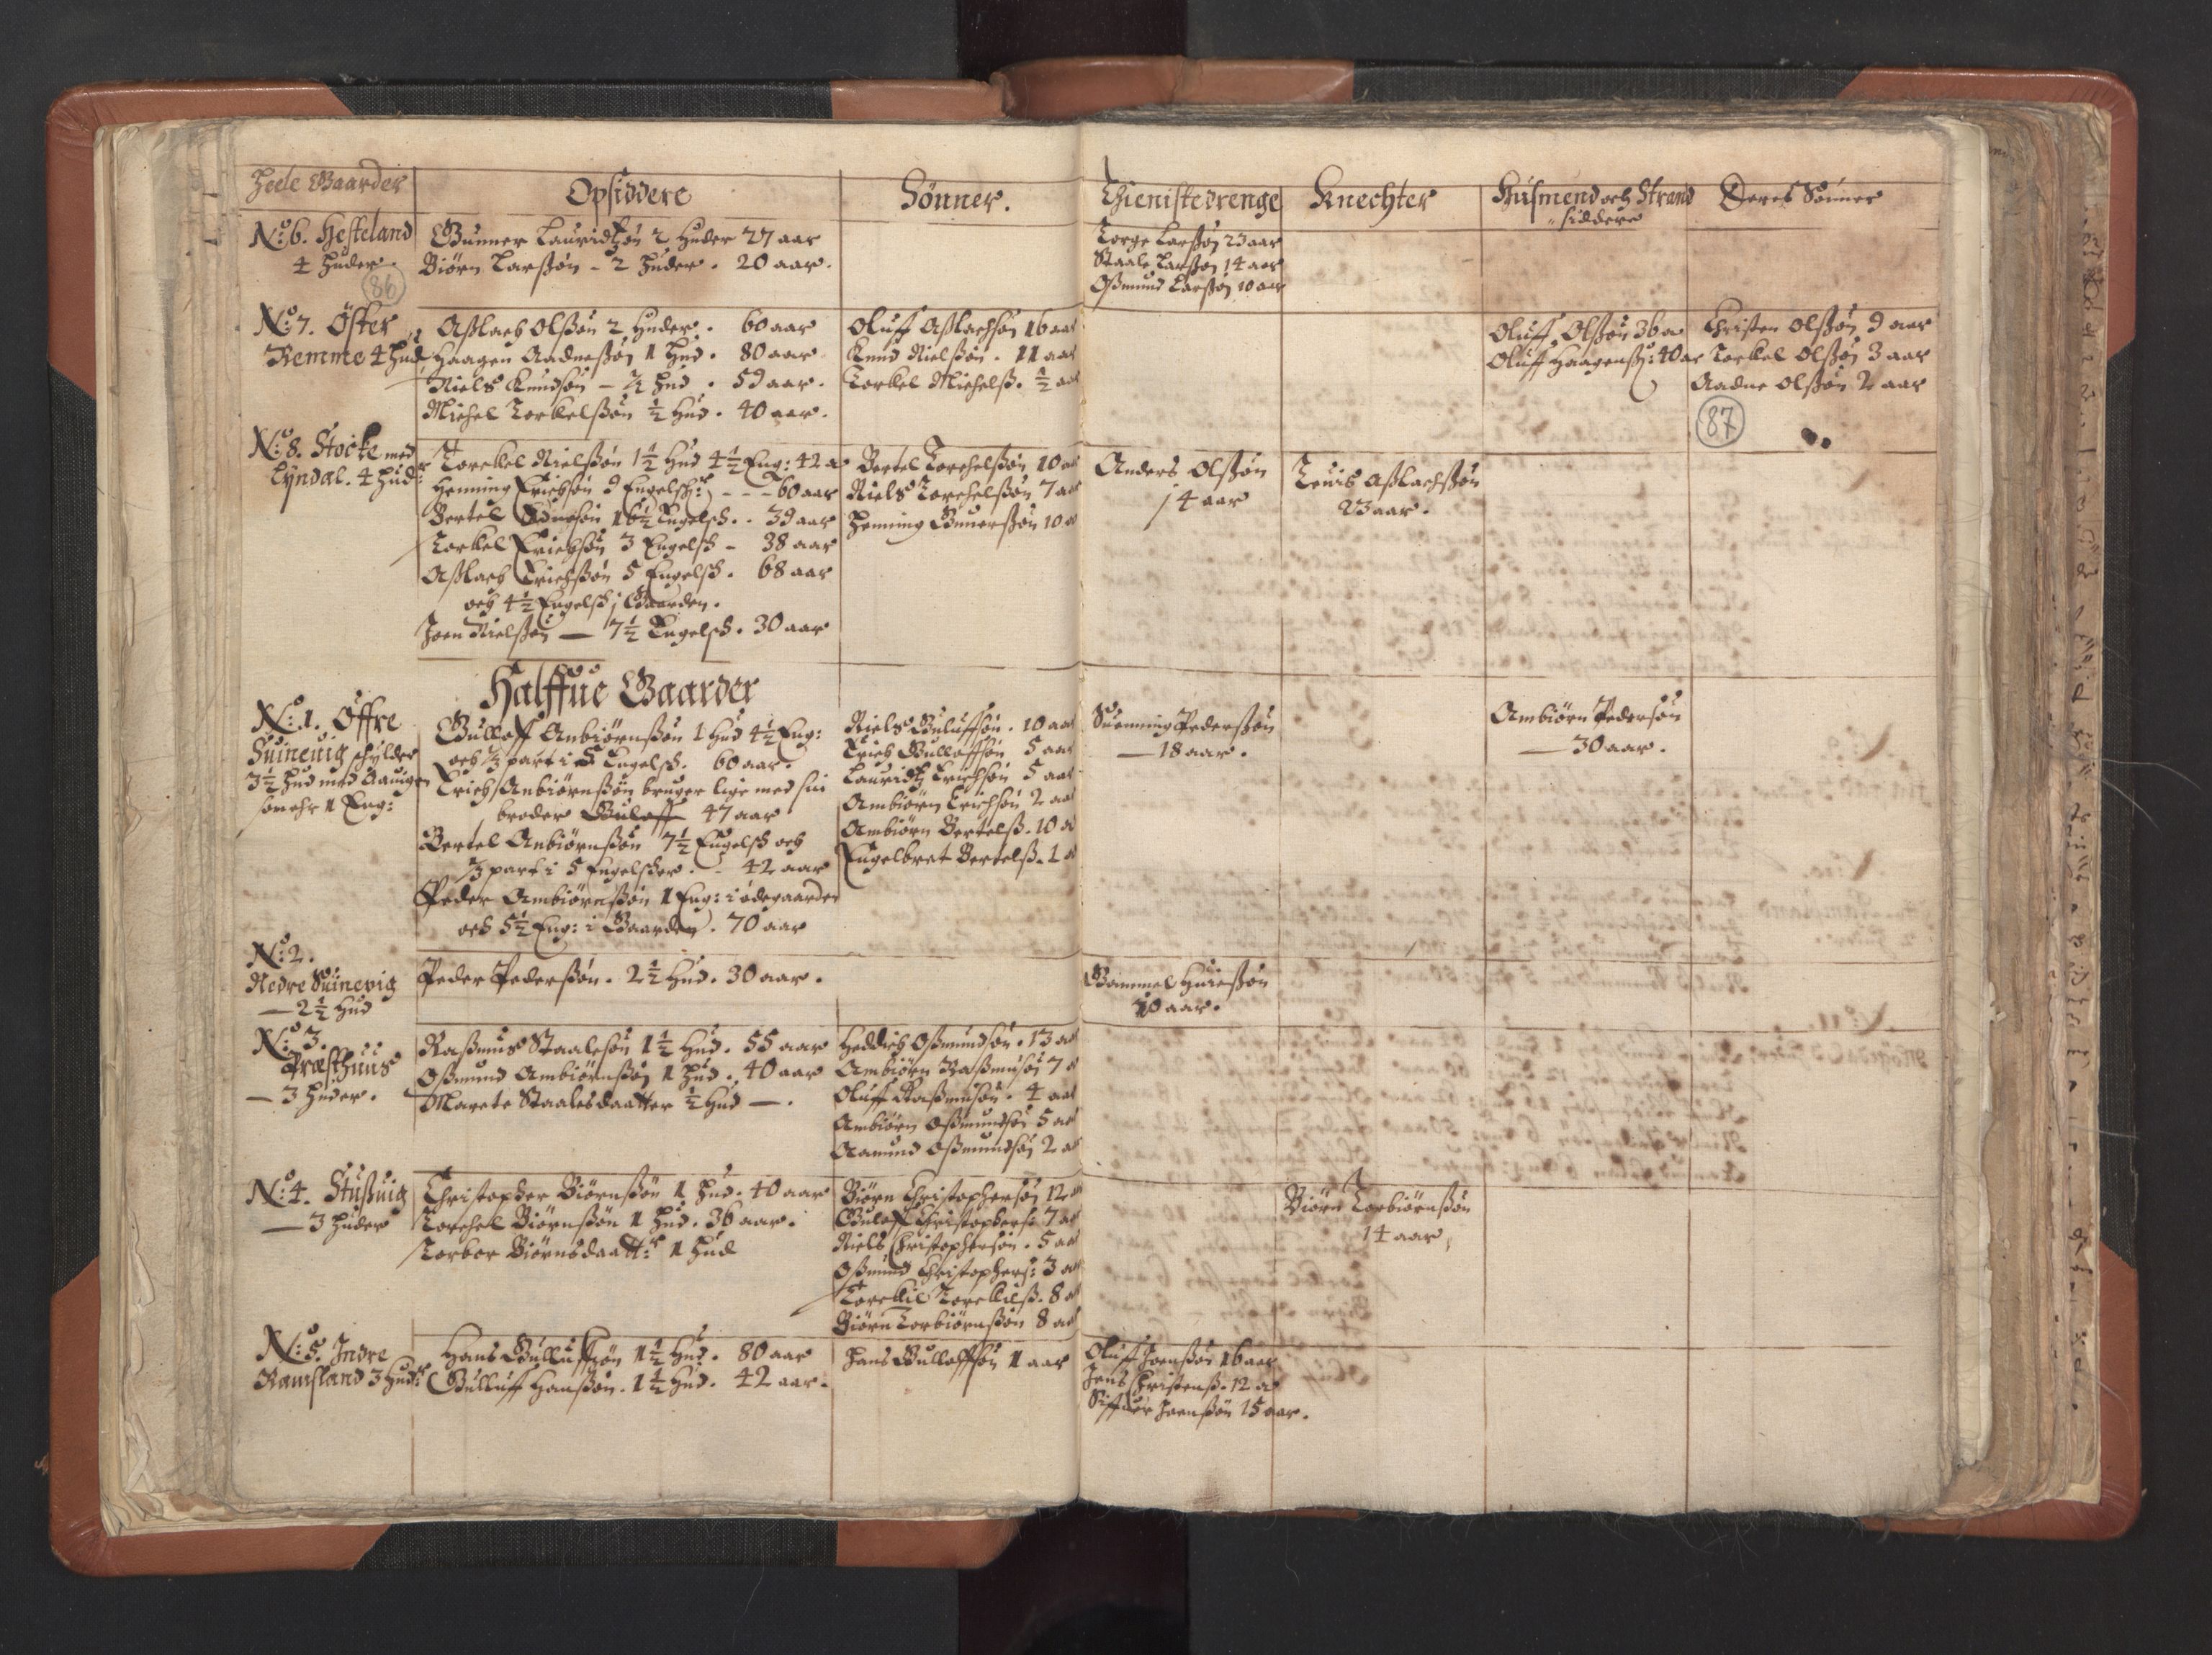 Heele Gaarder
Opsiddere
Sønner.
Thienistedrenge
Knechter
Husmend och Strand
siddere
Deres Sønner
No: 6. Hesteland
4 Huder.
86
Gunner Lauridtzøn 2 Huder 27 aar
Biørn Larssøn - 2 Huder. 20 aar.
Torge Larssøn 23 aar
Staale Larssøn 14 aar
Osmund Larssøn 10 aar
No: 7. Öster
Remme 4 Hud
Asslach Olssøn 2 Huder. 60 aar
Haagen Aadnessøn 1 Hud. 80 aar
Niels Knudsøn - ½ Hud. 59 aar.
Michel Torkelssøn ½ Hud. 40 aar.
Oluff Asslachsøn 16 aar
Knud Nielssøn. 11 aar
Torkel Michelss. ½ aar
Oluff Olssøn 36 a
Oluff Haagenss: 40 ar
Christen Olssøn 9 aar
Torkel Olssøn 3 aar
Aadne Olssøn 2 aar
87
No: 8. Stocke med
Lyndal. 4 Hud:
Torckel Nielssøn 1½ Hud 4½ Eng: 42 a
Henning Erichsøn 9 Engelsch: - - - 60 aar
Bertel 16½ Engelsch. . 39 aar
Torkel Erichsøn 3 Engelsch - 38 aar
Asslach Erichssøn 5 Engelsch. 68 aar
och 4½ Engelsch i Gaarden.
Joen Nielssøn — 7½ Engelsch. 30 aar
Bertel Torchelssøn 10 aar
Niels Torchelssøn 7 aar
Henning Gunerssøn 10 a
Anders Olssøn
14 aar
Teuis Asslachssøn
23 aar.
Halffue Gaarder
No: 1. Öffre
Suineuig schylder
3½ Hud med
som ehr 1 Eng:
Gulloff Anbiørnssøn 1 Hud 4½ Eng:
och ⅓ part i 5 Engelsch. 60 aar.
Erich Anbiørnssøn bruger lige med sin
broder Guloff 47 aar
Bertel Anbiørnssøn 7½ Engelsch och
⅓ part i 5 Engelscher. - 42 aar
Peder Ambiørnssøn 1 Eng: i ødegaarden
och 5½ Eng: i Gaarden. 70 aar
Niels Guluffsøn. 10 aar
Erich Gulloffsøn 5 aar
Lauridtz Erichsøn 5 aar
Ambiørn Erichsøn 2 aar
Ambiørn Bertelss. 10 a
Engelbret Bertelss. 1 a
Suenning Pederssøn
— 18 aar.
Ambiørn Pedersøn
— 30 aar.
No: 2.
Nedre Suinevig
— 2½ Hud
Peder Pederssøn. 2½ Hud. 30 aar.
Gammel
aar.
No: 3.
Præsthuus
— 3 Huder.
Rassmus Staalesøn 1½ Hud. 55 aar
Ossmund Ambiørnssøn 1 Hud. 40 aar
Marete Staalesdaatter ½ Hud —.
Heddich Ossmundsøn. 13 aar
Ambiørn Rassmusøn 7 a
Oluff Rassmusøn. 4 aar
Ambiørn Ossmundsøn 5 aar
Aamund Ossmundsøn 2 aar
No: 4. Stussuig
— 3 Huder
Christopher Biørnssøn 1 Hud. 40 aar
Torchel Biørnssøn 1 Hud. 36 aar.
Torbor Biørnsdaatt: 1 Hud
Biørn Christophersøn 12 a
Guloff Christophers: 7 aar
Niels Christophersøn. 5 aar
Ossmund Christophers: 3 aar
Torckil Torckilss. 8 a
Biørn Torbiørnssøn 8 aar
Biørn Torbiørnssøn
14 aar
No: 5. Indre
Ramsland 3 Hud:
Hans Gulluffsøn 1½ Hud. 80 aar
Gulluff Hanssøn. 1½ Hud. 42 aar.
Hans Gulloffsøn 1 aar
Oluff Joenssøn 16 aar
Jens Christenss. 12 a
Siffuer Joenssøn 15 aar.